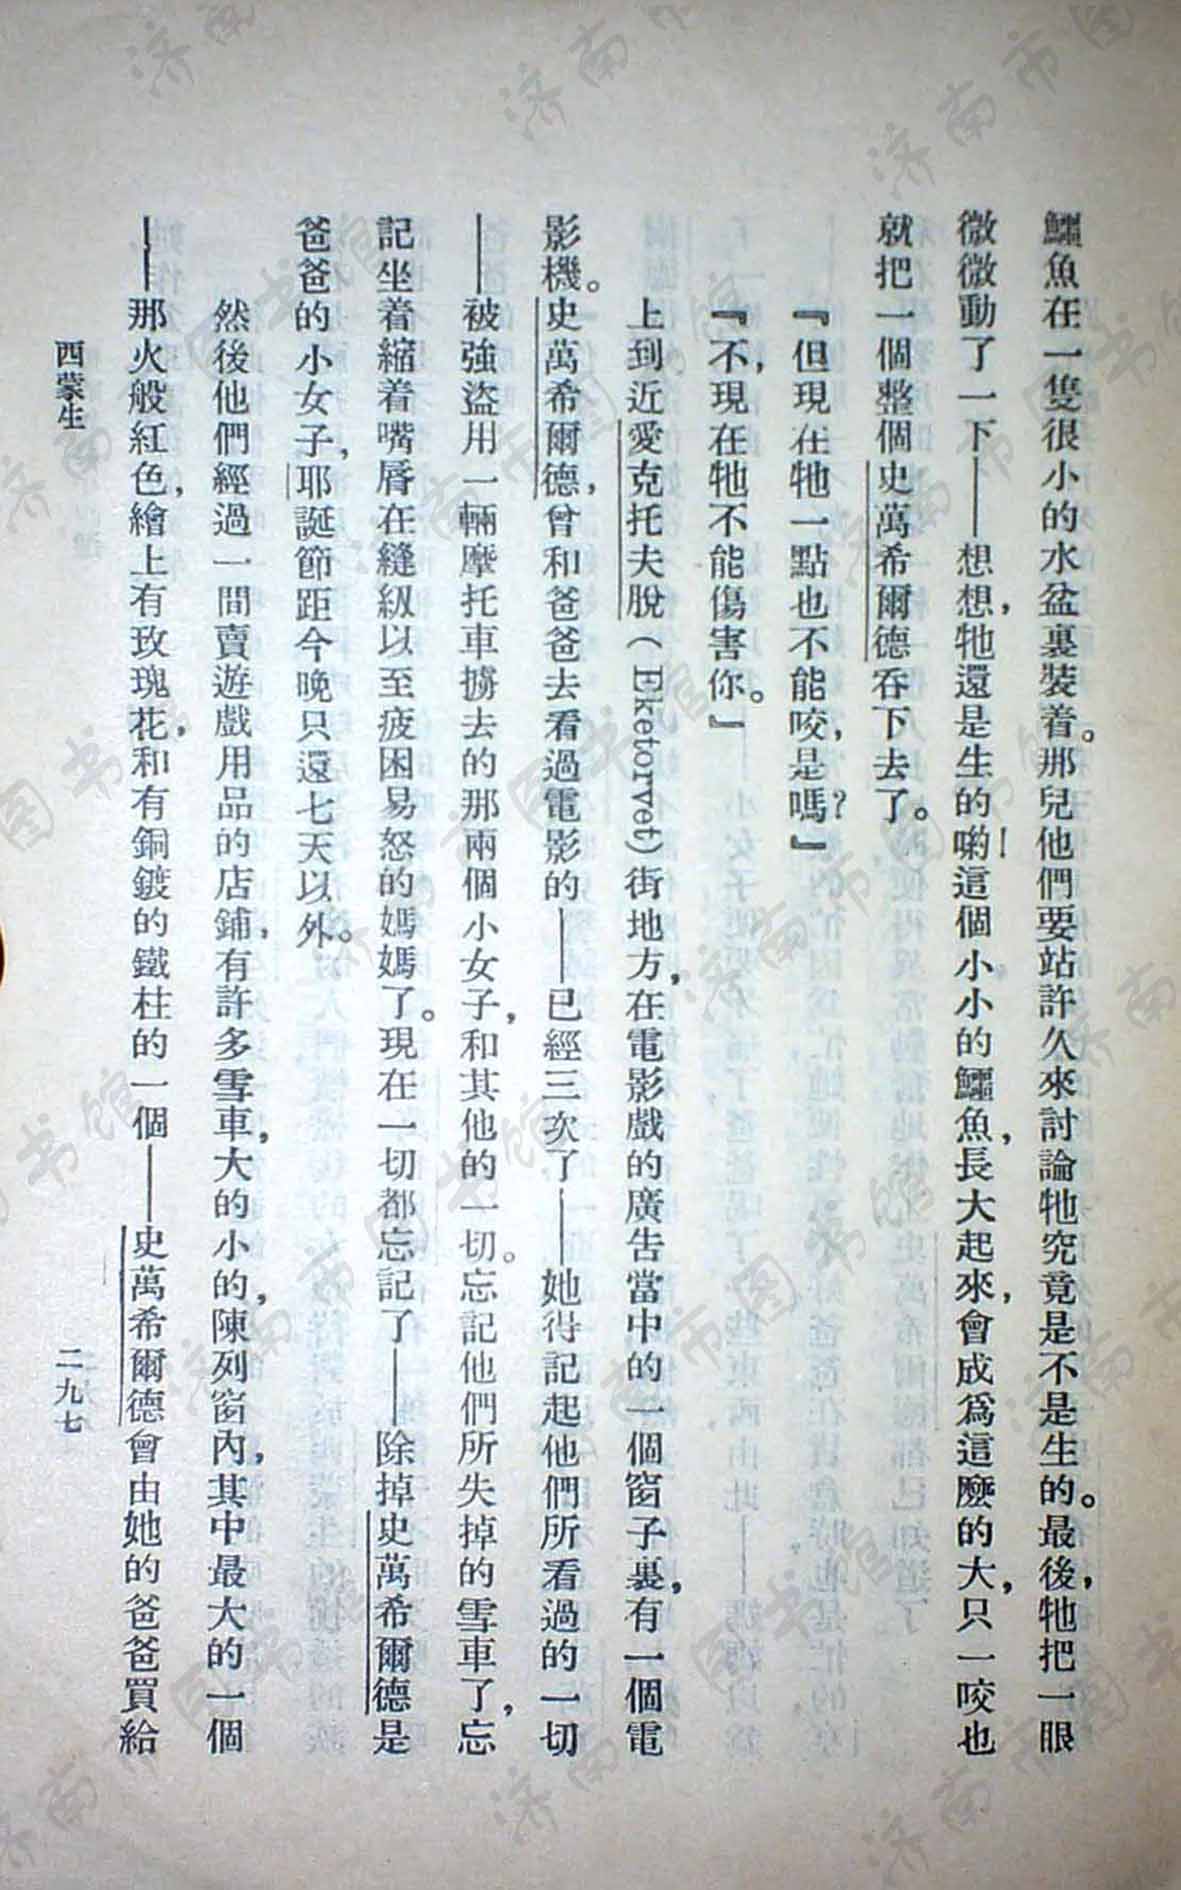 鱷魚在一隻很小的水盆裏裝着。那兒他們要站許久來討論牠究竟是不是生的。最後，牠把一眼
微微動了一下——想想，牠還是生的喲！這個小小的鱷魚，長大起來，會成爲這麼的大，只一咬也
就把一個整個史萬希爾德吞下去了。
『但現在牠一點也不能咬，是嗎？』
『不，現在牠不能傷害你。』
上到近愛克托夫脫（Eketorvet）街地方，在電影戲的廣告當中的一個窗子裏，有一個電
影機。史萬希爾德，曾和爸爸去看過電影的——已經三次了——她得記起他們所看過的一切
——被強盜用一輛摩托車擄去的那兩個小女子，和其他的一切。忘記他們所失掉的雪車了，忘
記坐着縮着嘴唇在縫級以至疲困易怒的媽媽了。現在一切都忘記了——除掉史萬希爾德是
爸爸的小女子，耶誕節距今晚只還七天以外。
然後他們經過一間賣遊戲用品的店鋪，有許多雪車，大的小的，陳列窗內，其中最大的一個
——那火般紅色，繪上有玫瑰花，和有銅鍍的鐵柱的一個——史萬希爾德會由她的爸爸買給
西蒙生
二九七
济南市图书馆